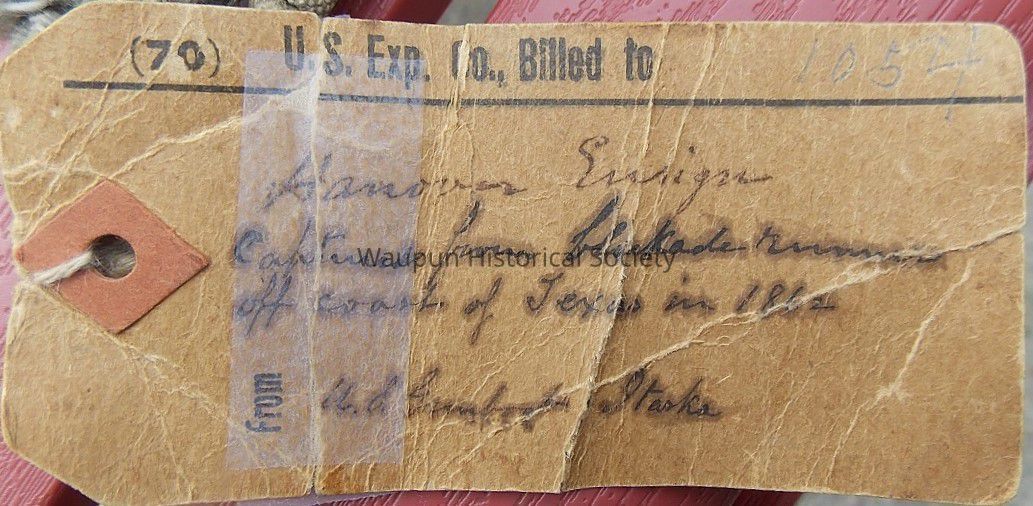 (70) U.S. Exp. Co., Billed to 1057
Hanover Ensign
Captured from blockade runner
Waupun Historical Society
off coast of Texas in 1862
from U.S. Gunboat Itaska